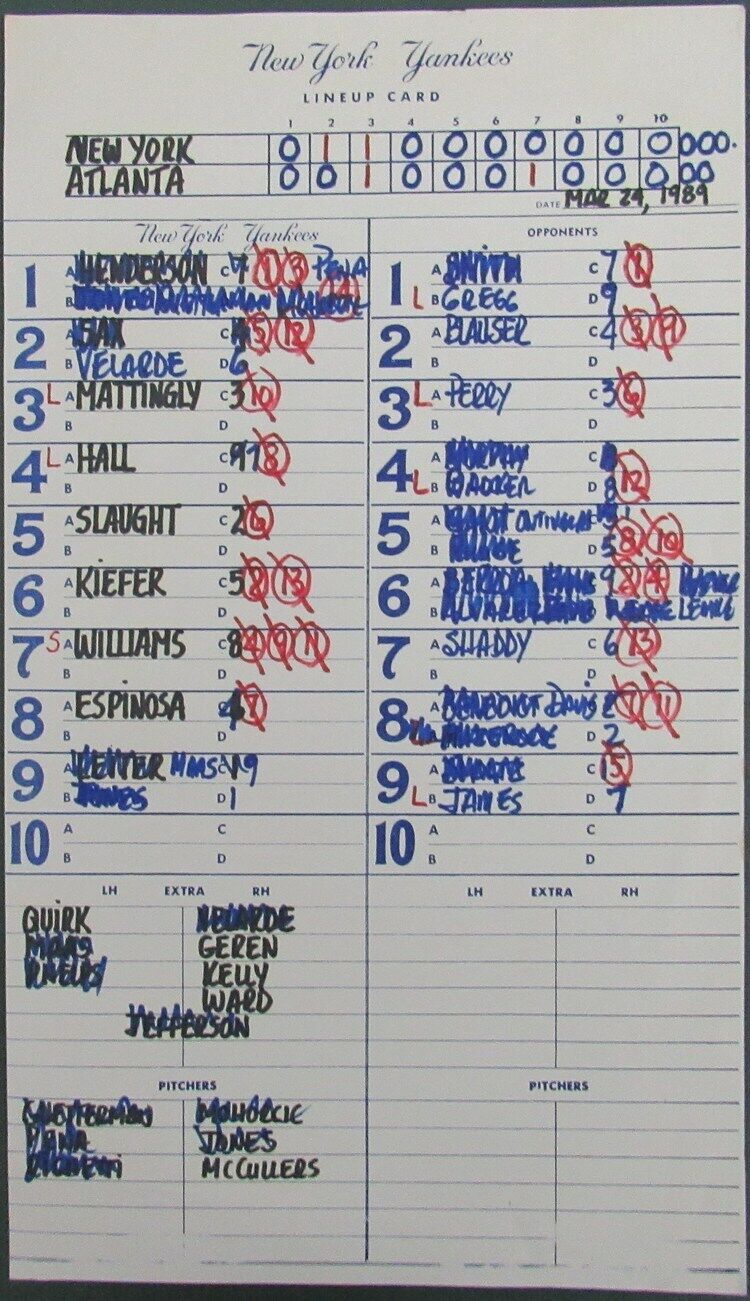 New York Yankees
LINEUP CARD
1 2 3 4 5 6 7 8 9 10
NEW YORK 0 1 1 0 0 0 0 0 0 0 000.
ATLANTA 0 0 1 0 0 0 1 0 0 0 00
DATE MAR 24, 1989
New York Yankees
OPPONENTS
1 A HENDERSON C 7 1 3 PENA
B 14
2 A SAX C 4 5 12
B VELARDE D 6
3 L A MATTINGLY C 3 10
B D
4 L A HALL C 9 7 8
B D
5 A SLAUGHT C 2 6
B D
6 A KIEFER C 5 2 13
B D
7 S A WILLIAMS C 8 4 9 11
B D
8 A ESPINOSA C 7
B D
9 A LEITER MAAS C 1 9
B JONES D 1
10 A C
B D
1 A SMITH C 7 1
L B GREGG D 9
2 A BLAUSER C 4 3 9
B D
3 L A PERRY C 3 6
B D
4 A MURPHY C 8
L B D 8 12
5 A C 5
B D 5 8 10
6 A C 9 2 4
B ALVAREZ LEMKE
7 A SHADDY C 6 13
B D
8 A BENEDICT DAVIS C 2 7 11
B D 2
9 A C 1 5
L B JAMES D 7
10 A C
B D
LH EXTRA RH
QUIRK VELARDE
MAAS GEREN
PHELPS KELLY
WARD
JEFFERSON
LH EXTRA RH
PITCHERS
GUETTERMAN MOHORCIC
PENA JONES
RIGHETTI McCULLERS
PITCHERS